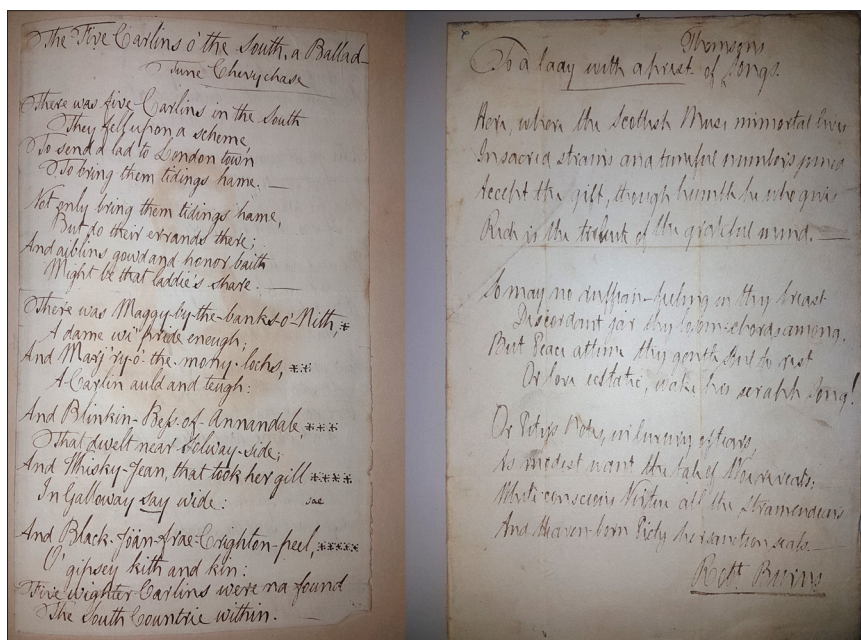 The Five Carlins o' the South, a Ballad
Tune Chevychase
There was five Carlins in the South
They fell upon a scheme,
To send a lad to London town
To bring them tidings hame. —
Not only bring them tidings hame,
But do their errands there;
And aiblins gowd and honor baith
Might be that laddie's share. —
There was Maggy-by-the-banks-o'-Nith, *
A dame wi' pride enough;
And Marj'ry-o'-the-mony-lochs, **
A Carlin auld and teugh:
And Blinkin-Bess-of-Annandale, ***
That dwelt near Solway-side;
And Whisky-Jean, that took her gill ****
In Galloway say wide:
sae
And Black-Joän-frae-Crighton-peel, *****
O' gipsey kith and kin:
Five wighter Carlins were na found
The South Countrie within.
Thomsons
To a lady with a prest. of Songs.
Here, where the Scottish Muse immortal lives
In sacred strains and tuneful numbers joined
Accept the gift, though humble he who gives
Rich is the tribute of the grateful mind. —
So may no ruffian-feeling in thy breast
Discordant jar thy bosom-chords among,
But Peace attune thy gentle soul to rest
Or love ecstatic, wake his seraph song!
Or Pity's Notes, in luxury of tears,
As modest want the tale of Woe reveals;
While conscious Virtue all the strain endears
And Heaven-born Piety her sanction seals.
Robt. Burns